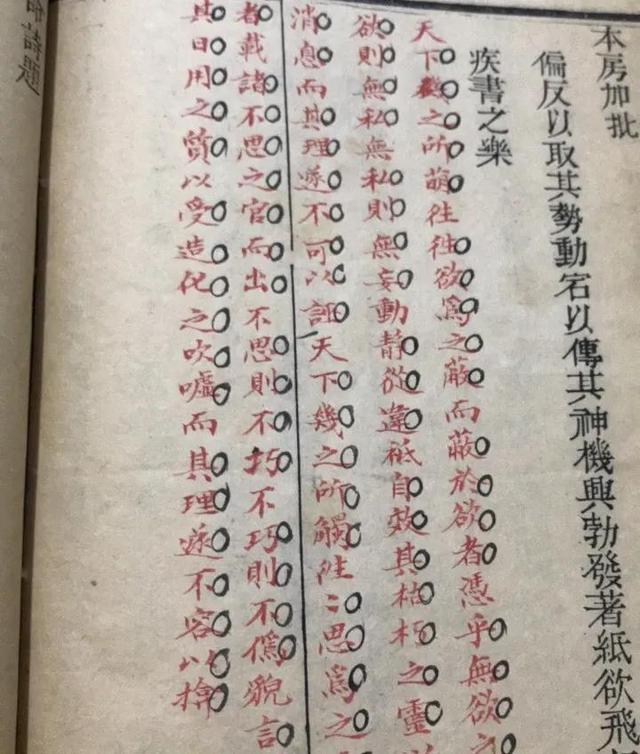 本房加批
偏反以取其勢動宕以傳其神機興勃發著紙欲飛
疾書之樂
天下幾之所萌往往欲爲之蔽而蔽於欲者憑乎無欲之
欲則無私無私則無妄動靜從違祗自效其枯朽之靈
消息而其理遂不可以誣天下幾之所觸往〻思爲之
者載諸不思之官而出不思則不巧不巧則不僞貌言
其日用之質以受造化之吹噓而其理遂不容以揜
詩題